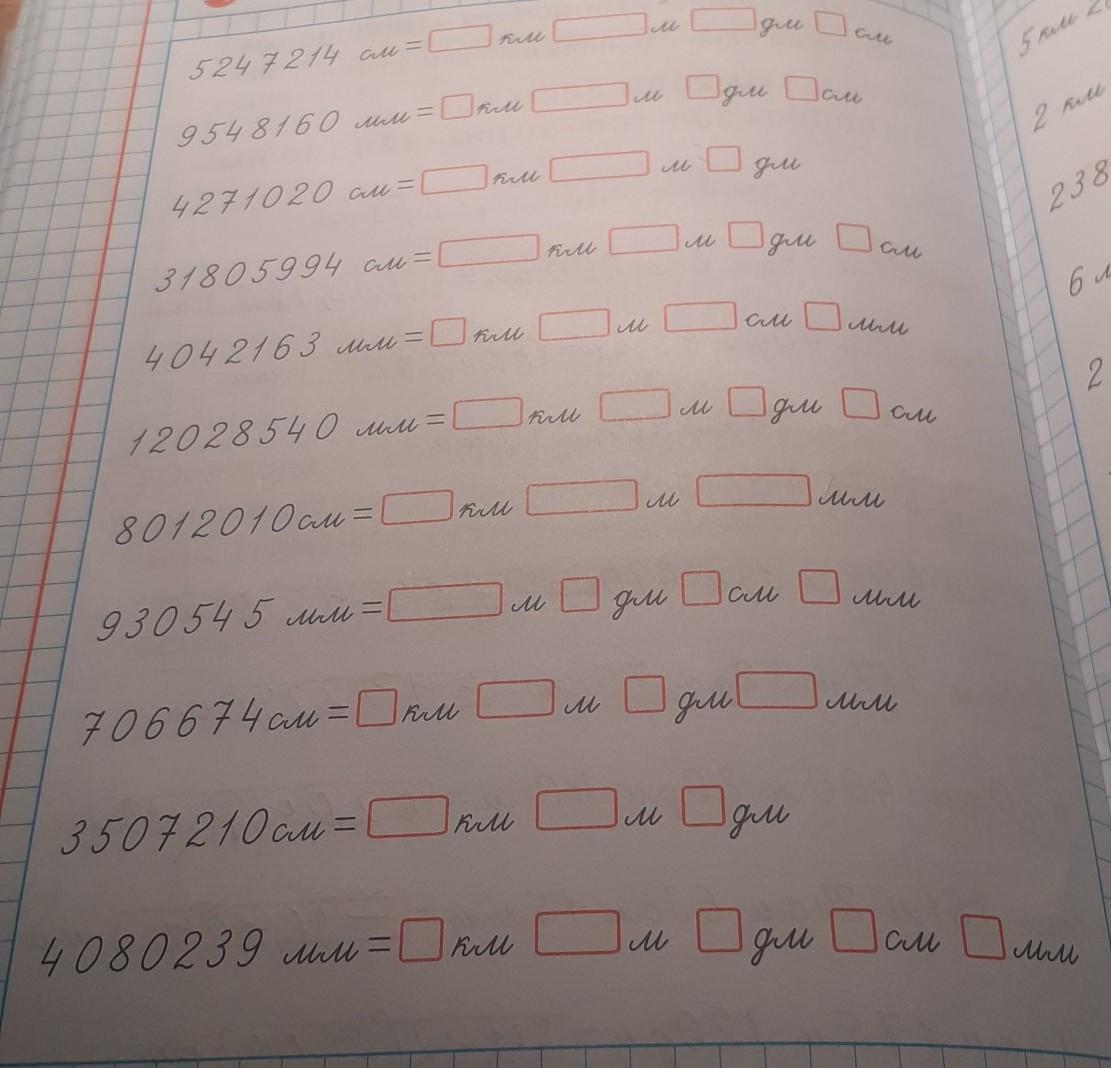 5247214 см = км м дм см
9548160 мм = км м дм см
4271020 см = км м дм
31805994 см = км м дм см
4042163 мм = км м см мм
12028540 мм = км м дм см
8012010 см = км м мм
930545 мм = м дм см мм
706674 см = км м дм мм
3507210 см = км м дм
4080239 мм = км м дм см мм
5 км
2 км
238
6
2